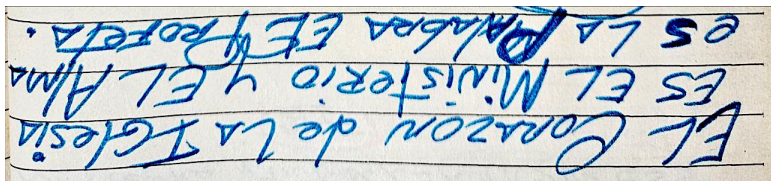 EL Corazon de La IGlesia
ES EL MiNiSTeRiO y EL AlMA
es LA PAlAbRA EL PROFeTA.